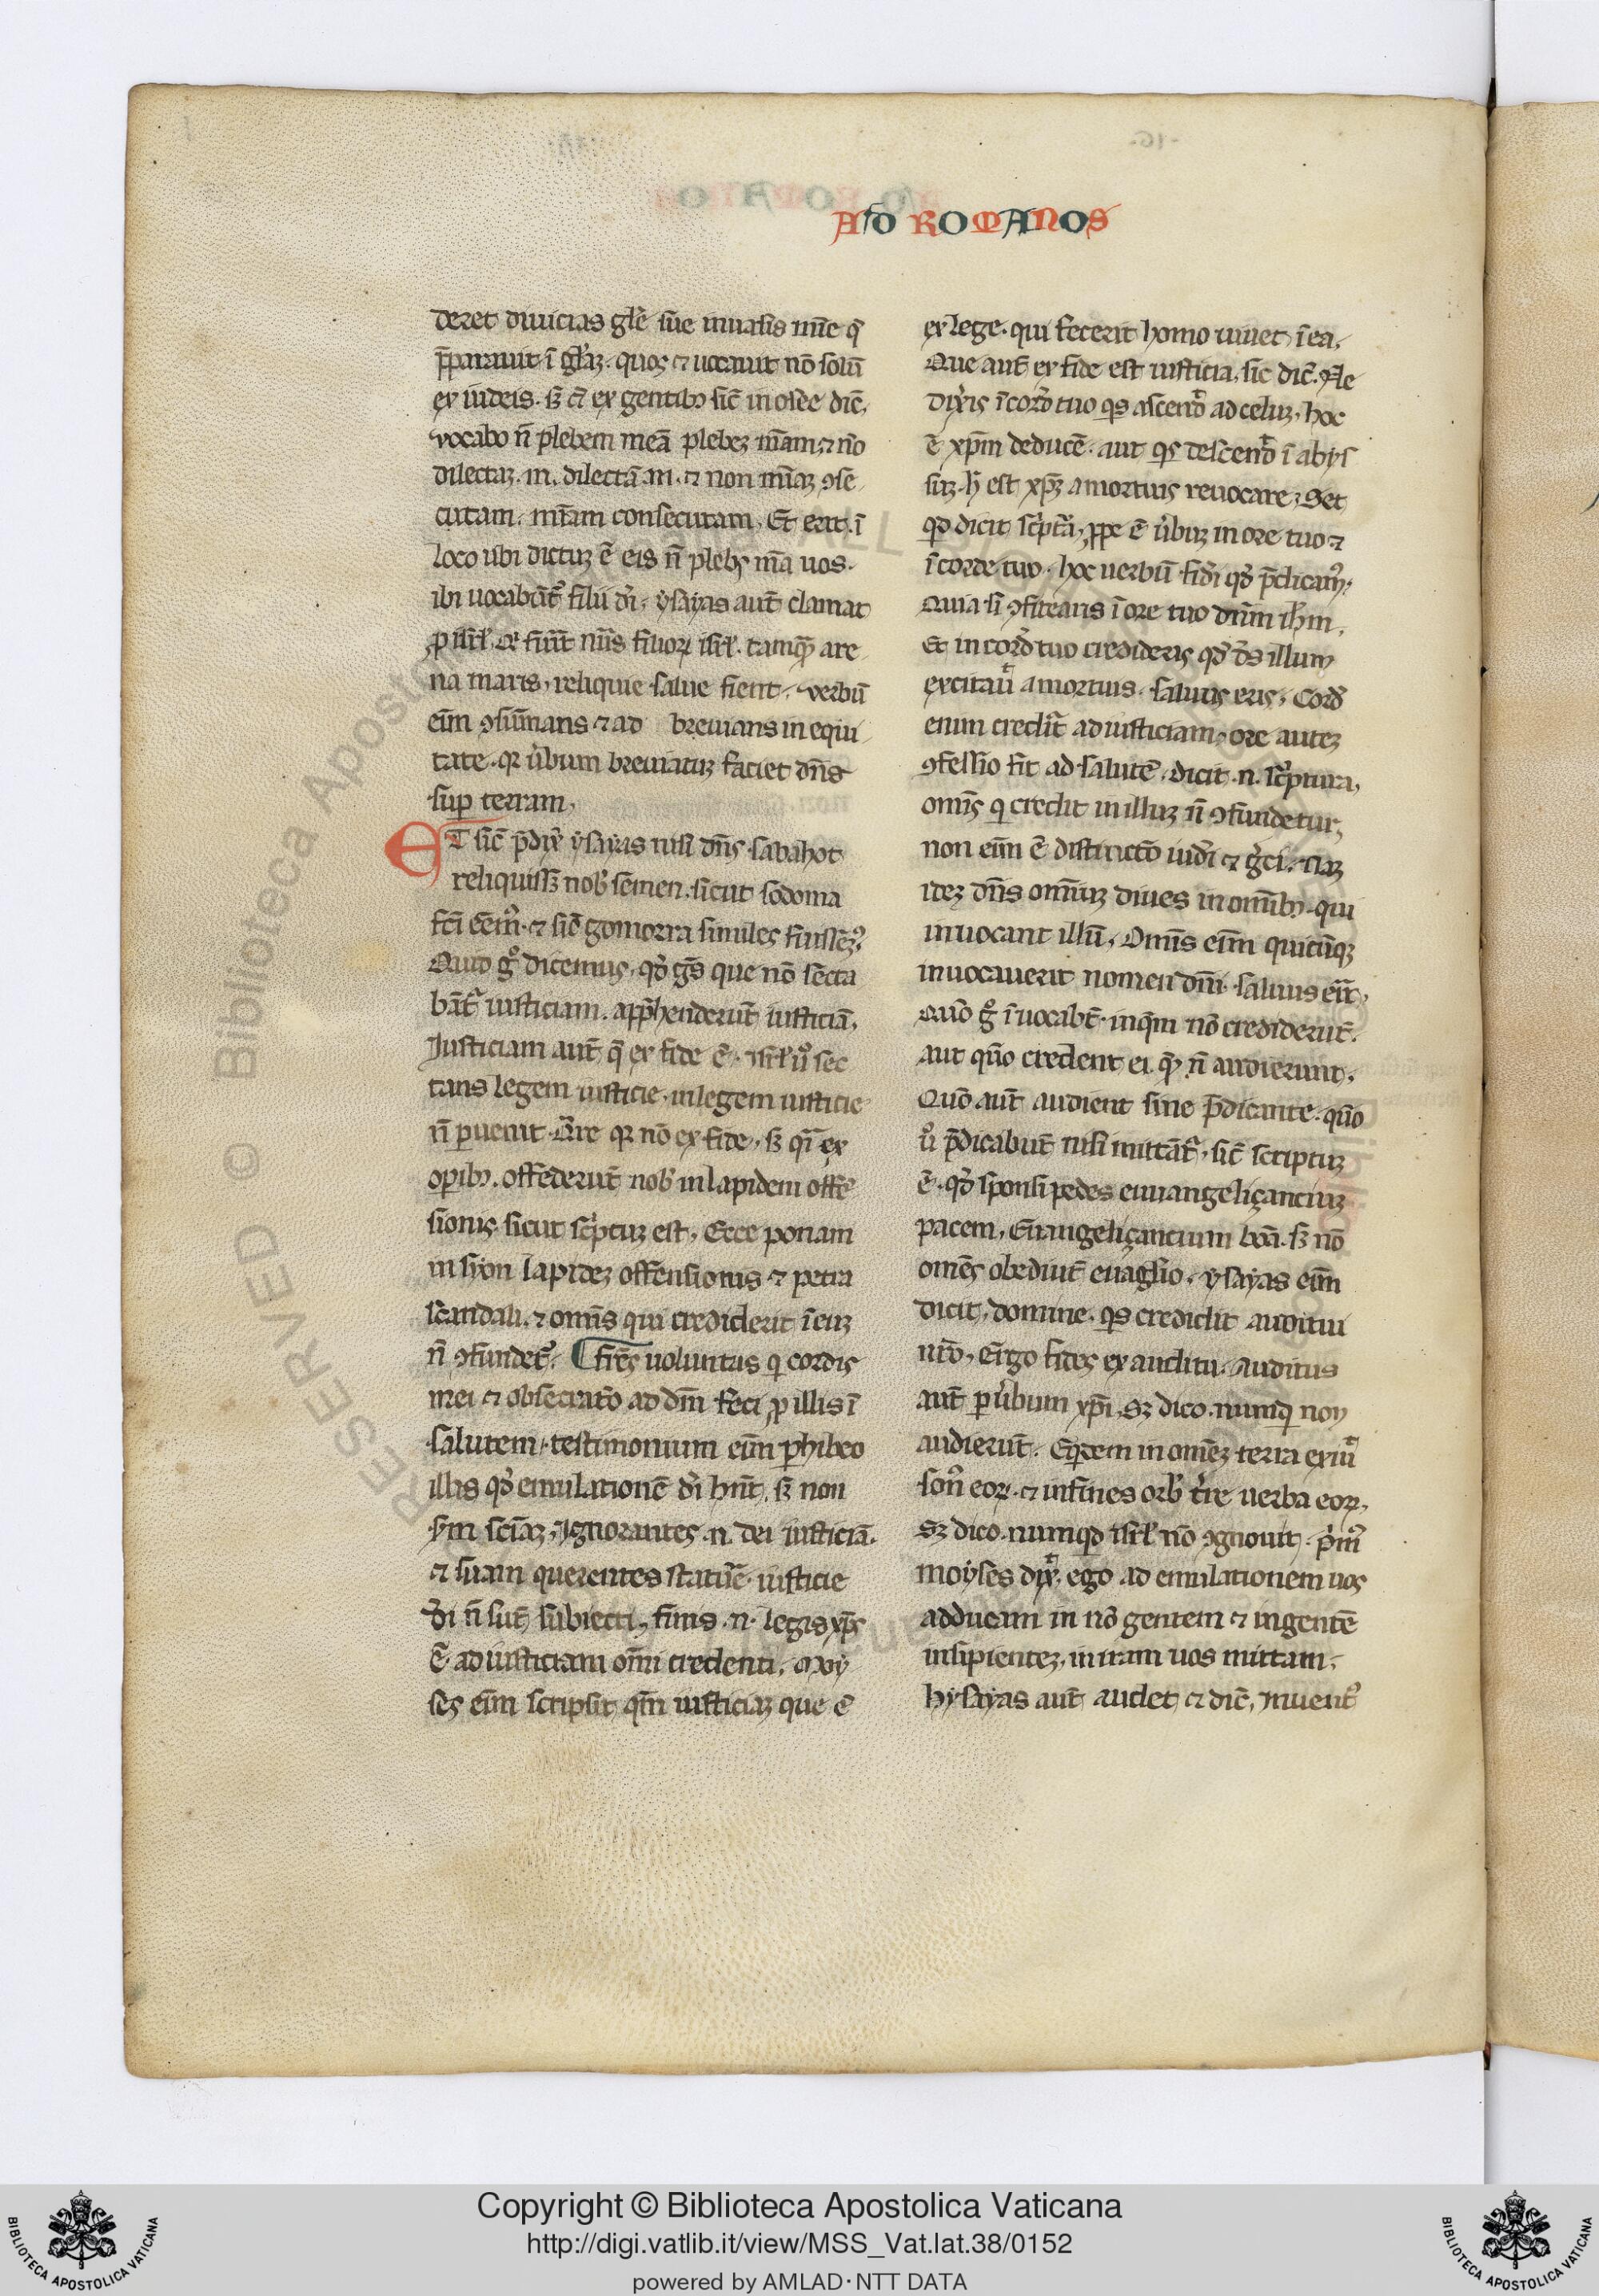 AD ROMANOS
deret diuicias glē sue inuasis mīe q̄
p̄parauit ī gl̄az. quos ⁊ uocauit nō solū
ex iudeis. sꝫ ⁊ ex gentibꝫ sic̄ in osēe dic̄.
vocabo n̄ plebem meā plebeꝫ m̄am. ⁊ n̄o
dilectaꝫ. m. dilectā. m. ⁊ non mīaꝫ ꝯse
cutam. mīam consecutam. Et erit. ī
loco ubi dictuꝫ ē eis n̄ plebs m̄a uos.
ibi uocabūt᷑ filii dī. ysayas aut̄ clamat
ꝓ isrl̄. si fūit nūs filioꝝ isrl̄. tamqꝫ are
na maris. reliquie salue fient. verbū
eīm ꝯsūmans ⁊ ad breuians in equi
tate. qꝛ ūbum breuiatuꝫ faciet dn̄s
suꝑ terram.
ET sic̄ p̄dix̄ ysayas nisi dn̄s sabahot
reliquissꝫ nob̄ semen. sicut sodoma
fc̄i eēm᷒. ⁊ sic̄ gomorra similes fuissem᷒.
Quid gͦ dicemus. qd̄ gēs que nō secta
bāt᷑ iusticiam. app̄henderūt iusticiā.
Iusticiam aut̄ q̄ ex fide ē. isrl̄ uͦ sec
tans legem iusticie. in legem iusticie
n̄ ꝑuenit. Q̄re qꝛ nō ex fide. sꝫ q̄i ex
oꝑibꝫ. offēderūt nob̄ in lapidem offē
sionis. sicut sc̄ptuꝫ est. Ecce ponam
in syon lapideꝫ offensionis ⁊ petra
scandali. ⁊ omīs qui crediderit ī euꝫ
n̄ ꝯfundet᷑. ¶ fr̄es uoluntas q̄ cordis
mei ⁊ obsecratō ad dm̄ feci ꝓ illis ī
salutem. testimonium eīm ꝑhibeo
illis qd̄ emulationē dī hn̄t. sꝫ non
sm̄ sciāꝫ. Ignorantes .n. dei iusticiā.
⁊ suam querentes statuē̄. iusticie
dī n̄ sūt subiecti. finis .n. legis xp̄s
ē ad iusticiam om̄i credenti. Moy
ses eīm scripsit qm̄ iusticiaꝫ que ē
ex lege. qui fecerit homo uiuet ī ea.
Que aut̄ ex fide est iusticia. sic dic̄. Ne
dix̄is ī cord̄ tuo qs ascend̄ ad celuꝫ. hoc
ē xp̄m deducē. aut qs descend̄ ī abys
suꝫ. h̄ est xp̄ꝫ a mortuis reuocare. Set
qd dicit sc̄ptā. ꝓpe ē ūbuꝫ in ore tuo ⁊
ī corde tuo. hoc uerbū fidī qd̄ p̄dicam᷒.
Quia si ꝯfitearis ī ore tuo dn̄m ih̄m.
Et in cord̄ tuo credideris qd̄ d̄s illum
excitau̅ a mortuis. saluus eris. Cord̄
enim credit̄ ad iusticiam. ore auteꝫ
ꝯfessio fit ad salutē. dicit .n. sc̄ptura.
omīs q̄ credit in illuꝫ n̄ ꝯfundetur.
non eīm ē distinctō iudī ⁊ ḡci. nāꝫ
ideꝫ dn̄s omīuꝫ diues in omībꝫ. qui
inuocant illū. Omīs eīm quicūqꝫ
inuocauerit nomen dn̄i. saluus erit̄.
Quō gͦ ī uocabt̄. in qm̄ nō crediderūt.
aut quō credent ei. quē n̄ audierunt.
Quō aut̄ audient sine p̄dicante. quō
uͦ p̄dicabūt nisi mittāt᷑. sic̄ scriptuꝫ
ē. qd̄ sponsi pedes euuangeliçanciuꝫ
pacem. Euuangeliçantium bōā. sꝫ nō
omēs obediūt euāgl̄io. ysayas eīm
dicit. domine. qs credidit auditui
nr̄o. Ergo fides ex auditu. auditus
aut̄ ꝑ ūbum xp̄i. Sꝫ dico. numq̄ non
audierūt. Eqꝺem in omēꝫ terra exiū̄
son᷒ eoꝝ. ⁊ in fines orb̄ tīe uerba eoꝝ.
Sꝫ dico. numqd isrl̄ nō ꝯgnouit. p̄m᷒
moyses dix̄. ego ad emulationem uos
adducam in nō gentem ⁊ in gentē
insipienteꝫ. in iram uos mittam.
hysayas aut̄ audet ⁊ dic̄. Inuent᷒
Copyright © Biblioteca Apostolica Vaticana
http://digi.vatlib.it/view/MSS_Vat.lat.38/0152
powered by AMLAD·NTT DATA
BIBLIOTECA APOSTOLICA VATICANA
BIBLIOTECA APOSTOLICA VATICANA